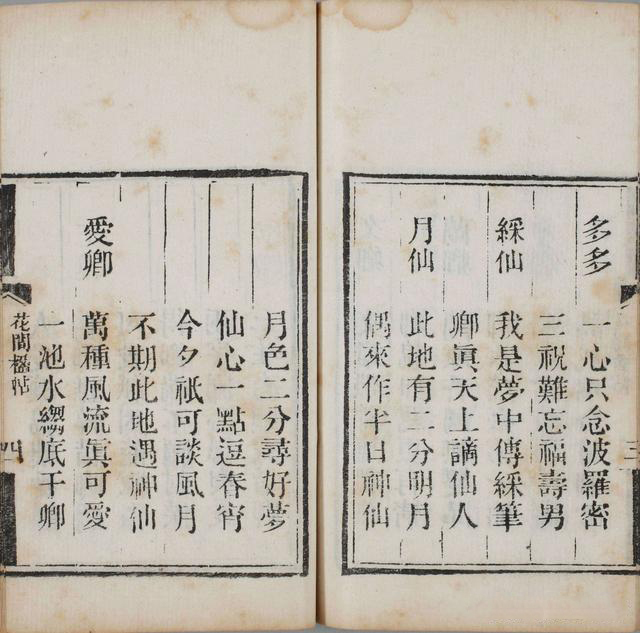 多多
一心只念波羅密
三祝難忘福壽男
綵仙
我是夢中傳綵筆
卿眞天上謫仙人
月仙
此地有二分明月
偶來作半日神仙
三
月色二分尋好夢
仙心一點逗春宵
今夕祇可談風月
不期此地遇神仙
愛卿
萬種風流眞可愛
一池水縐底干卿
花間楹帖
四